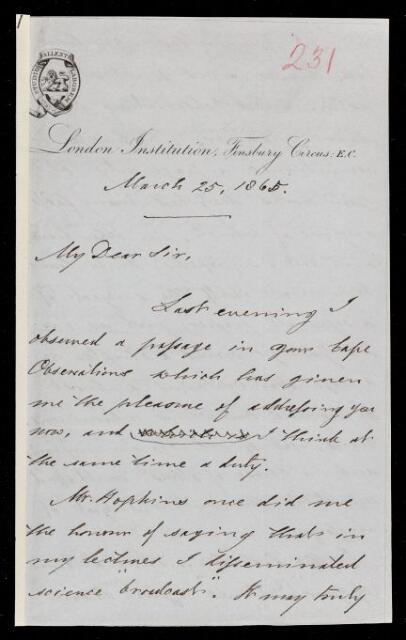 231
STUDIO FALLENTE LABOREM
London Institution, Finsbury Circus: E.C.
March 25, 1865.
My Dear Sir,
Last evening I
observed a passage in your Cape
Observations which has given
me the pleasure of addressing you
now, and I think at
the same time a duty.
Mr. Hopkins once did me
the honour of saying that in
my lectures I disseminated
science "broadcast". It may truly